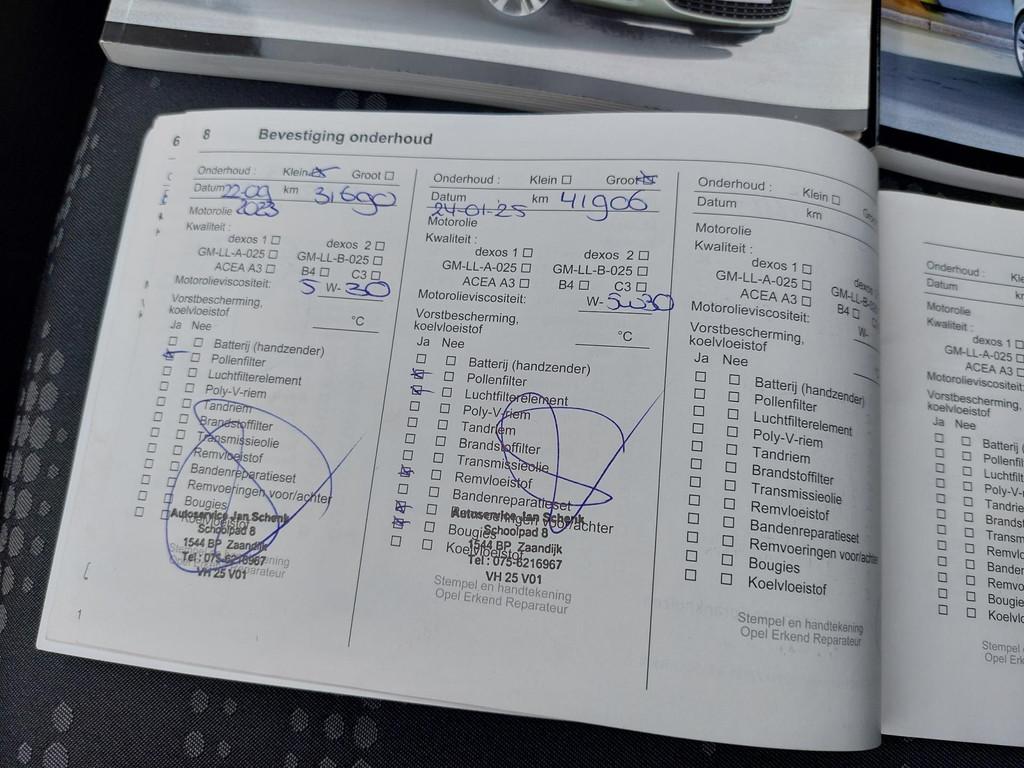 6 8 Bevestiging onderhoud
Onderhoud : Klein ☒ Groot ☐
Datum 22-09 2023 km 31690
Motorolie
Kwaliteit :
dexos 1 ☐ dexos 2 ☐
GM-LL-A-025 ☐ GM-LL-B-025 ☐
ACEA A3 ☐ B4 ☐ C3 ☐
Motorolieviscositeit: 5 W- 30
Vorstbescherming,
koelvloeistof °C
Ja Nee
☐ ☐ Batterij (handzender)
☒ ☐ Pollenfilter
☐ ☐ Luchtfilterelement
☐ ☐ Poly-V-riem
☐ ☐ Tandriem
☐ ☐ Brandstoffilter
☐ ☐ Transmissieolie
☐ ☐ Remvloeistof
☐ ☐ Bandenreparatieset
☐ ☐ Remvoeringen voor/achter
☐ ☐ Bougies
☐ ☐ Koelvloeistof
Autoservice Jan Schenk
Schoolpad 8
1544 BP Zaandijk
Tel : 075-6216967
VH 25 V01
1
Onderhoud : Klein ☐ Groot ☒
Datum 24-01-25 km 41906
Motorolie
Kwaliteit :
dexos 1 ☐ dexos 2 ☐
GM-LL-A-025 ☐ GM-LL-B-025 ☐
ACEA A3 ☐ B4 ☐ C3 ☐
Motorolieviscositeit: W- 5w30
Vorstbescherming,
koelvloeistof °C
Ja Nee
☐ ☐ Batterij (handzender)
☒ ☐ Pollenfilter
☒ ☐ Luchtfilterelement
☐ ☐ Poly-V-riem
☐ ☐ Tandriem
☐ ☐ Brandstoffilter
☐ ☐ Transmissieolie
☒ ☐ Remvloeistof
☐ ☐ Bandenreparatieset
☒ ☐ Remvoeringen voor/achter
☒ ☐ Bougies
☐ ☐ Koelvloeistof
Autoservice Jan Schenk
Schoolpad 8
1544 BP Zaandijk
Tel : 075-6216967
VH 25 V01
Stempel en handtekening
Opel Erkend Reparateur
Onderhoud : Klein ☐
Datum km
Motorolie
Kwaliteit :
dexos 1 ☐
GM-LL-A-025 ☐ GM-LL-B-
ACEA A3 ☐ B4 ☐
Motorolieviscositeit: W-
Vorstbescherming,
koelvloeistof
Ja Nee
☐ ☐ Batterij (handzender)
☐ ☐ Pollenfilter
☐ ☐ Luchtfilterelement
☐ ☐ Poly-V-riem
☐ ☐ Tandriem
☐ ☐ Brandstoffilter
☐ ☐ Transmissieolie
☐ ☐ Remvloeistof
☐ ☐ Bandenreparatieset
☐ ☐ Remvoeringen voor/achter
☐ ☐ Bougies
☐ ☐ Koelvloeistof
Stempel en handtekening
Opel Erkend Reparateur
Onderhoud :
Datum
Motorolie
Kwaliteit :
dexos 1 ☐
GM-LL-A-025 ☐
ACEA A3 ☐
Motorolieviscositeit:
Vorstbescherming,
koelvloeistof
Ja Nee